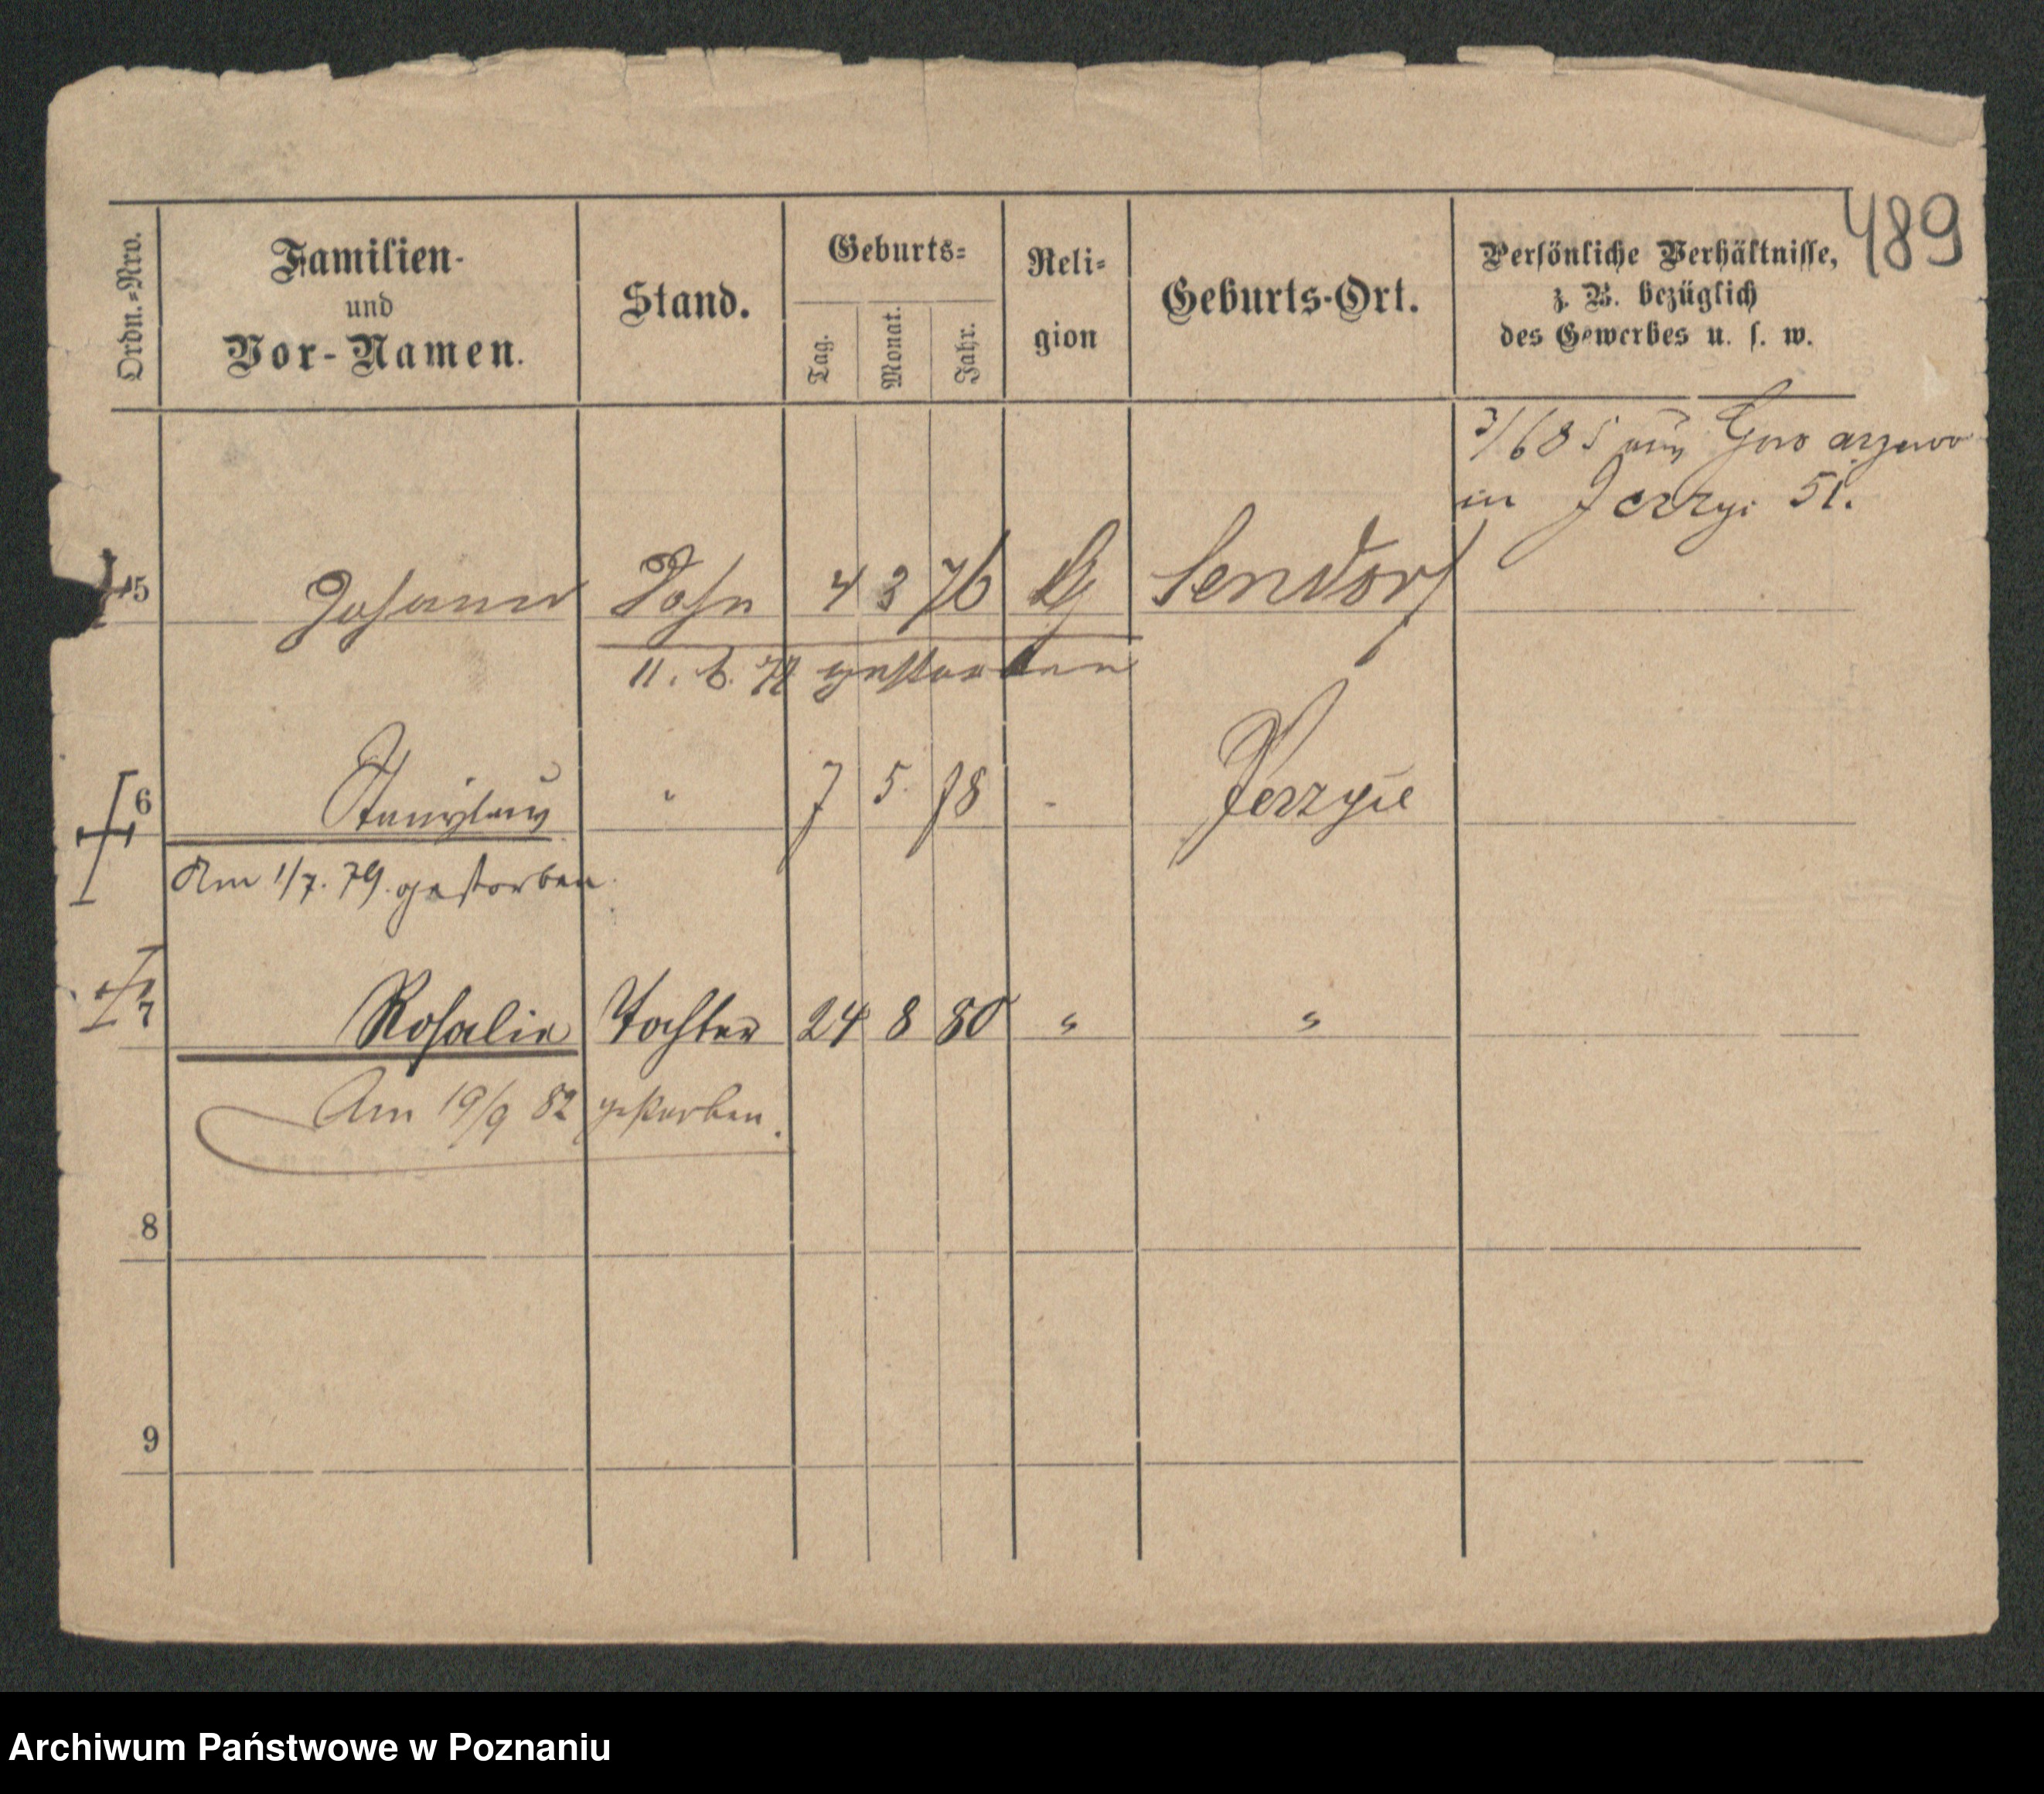 489
Ordn.-Nro.
Familien-
und
Vor-Namen.
Stand.
Geburts-
Tag.
Monat.
Jahr.
Reli-
gion
Geburts-Ort.
Persönliche Verhältnisse,
z. B. bezüglich
des Gewerbes u. s. w.
3/6 85 aus
in Jerzyi 51.
5 Johann Sohn 4 3 76 Sendorf
11. 6. gestorben
6 Stanislaus " 7 5. 78 - Jerzyce
Am 1/7. 79. gestorben.
7 Rosalie Tochter 24 8 80 " "
Am 19/9 82 gestorben.
8
9
Archiwum Państwowe w Poznaniu